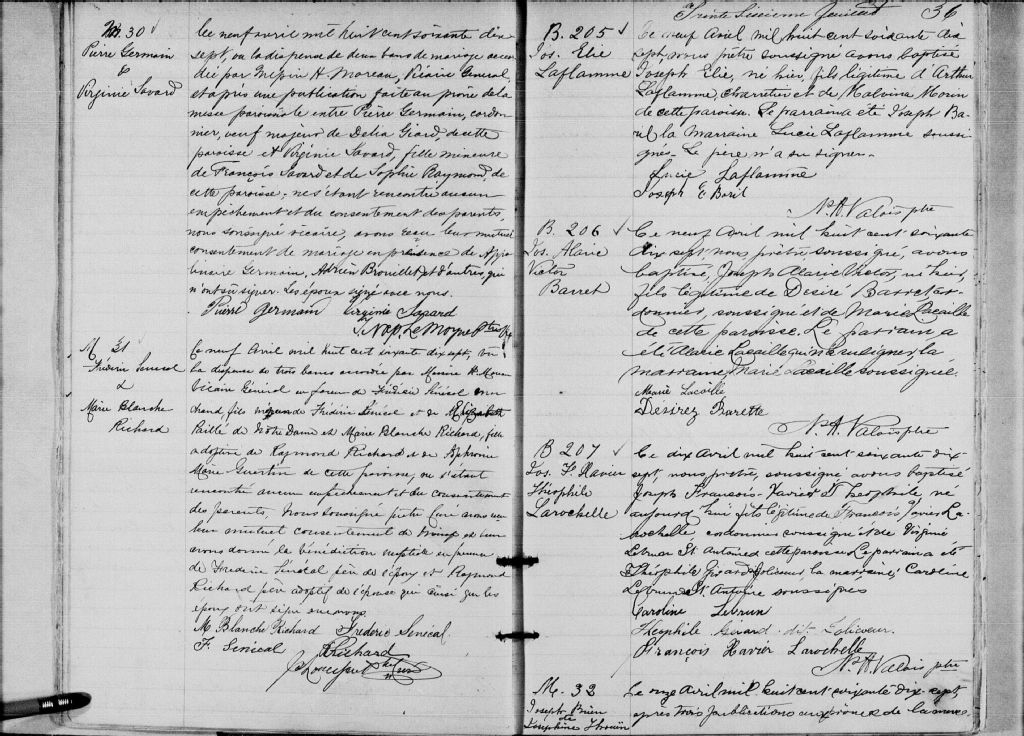 M. 30
Pierre Germain
&
Virginie Savard
Le neuf avril mil huit cent soixante dix
sept, vu la dispense de deux bans de mariage accor
dée par Messire H. Moreau, Vicaire Général,
et après une publication faite au prône de la
messe paroissiale entre Pierre Germain, cordon
nier, veuf majeur de Delia Giard, de cette
paroisse et Virginie Savard, fille mineure
de François Savard et de Sophie Raymond, de
cette paroisse; ne s'étant rencontré aucun
empêchement et du consentement des parents,
nous soussigné vicaire, avons reçu leur mutuel
consentement de mariage en présence de Appo
linaire Germain, Adrien Brouillet et d'autres qui
n'ont su signer. Les époux signé avec nous.
Pierre Germain Virginie Savard
Nap. LeMoyne Ptre
M 31
Frédéric Senecal
&
Marie Blanche
Richard
Ce neuf Avril mil huit cent soixante dix sept, vu
la dispense de trois bans accordée par Messire H. Moreau
Vicaire Général en faveur de Frédéric Sénécal mar
chand, fils mineur de Frédéric Sénécal et de Elizabeth
Paillé de Notre Dame et Marie Blanche Richard, fille
adoptive de Raymond Richard et de Euphrosine
Marie Guertin de cette paroisse, ne s'étant
rencontré aucun empêchement et du consentement
des parents, Nous soussigné prêtre Curé avons reçu
leur mutuel consentement de mariage et leur
avons donné la bénédiction nuptiale en présence
de Frédéric Sénécal père de l'époux et Raymond
Richard père adoptif de l'épouse qui ainsi que les
époux ont signé avec nous
M. Blanche Richard Frederic Senécal.
F. Senécal Richard
Trente Sixième feuillet 36
B. 205
Jos. Elie
Laflamme
Ce neuf Avril mil huit cent soixante dix
sept, nous prêtre soussigné avons baptisé
Joseph Elie, né hier, fils légitime d'Arthur
Laflamme, charretier et de Malvina Morin
de cette paroisse. Le parrain a été Joseph Ba-
ril la marraine Lucie Laflamme soussi
gnés. Le père n'a su signer.
Lucie Laflamme
Joseph E Baril
N. A. Valois ptre
B. 206
Jos. Alarie
Victor
Barret
Ce neuf Avril mil huit cent soixante
dix sept, nous prêtre, soussigné, avons
baptisé, Joseph Alarie Victor, né hier,
fils légitime de Desiré Barret cor
donnier, soussigné et de Marie Lacaille
de cette paroisse. Le parrain a
été Alarie Lacaille qui n'a su signer la
marraine Marie Lacaille soussignée.
Marie Lacaille
Desirez Barette
N. A. Valois ptre
B 207
Jos. F. Xavier
Théophile
Larochelle
Ce dix Avril mil huit cent soixante dix
sept, nous prêtre, soussigné avons baptisé
Joseph François-Xavier Théophile, né
aujourd'hui fils légitime de François Xavier La
rochelle, cordonnier soussigné et de Virginie
Lebrun St. Antoine de cette paroisse. Le parrain a été
Théophile Girard Lolieseur, la marraine, Caroline
Lebrun St. Antoine soussignés
Caroline Lebrun
Théophile Girard dit
François Xavier Larochelle
N. A. Valois ptre
M. 32
Joseph Brien
&
Josephine
Le onze Avril mil huit cent soixante dix-sept,
après trois publications aux prônes de la messe